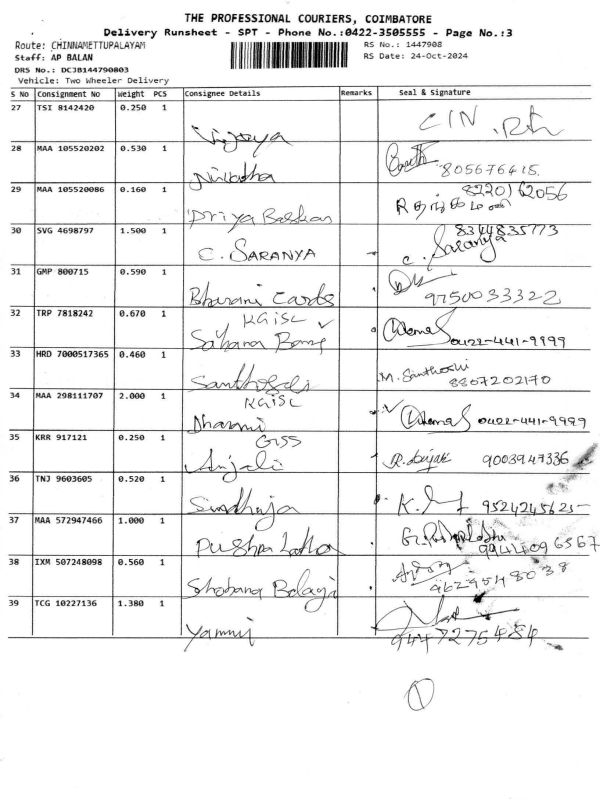 THE PROFESSIONAL COURIERS, COIMBATORE
Delivery Runsheet - SPT - Phone No.:0422-3505555 - Page No.:3
Route: CHINNAMETTUPALAYAM
RS No.: 1447908
Staff: AP BALAN
RS Date: 24-Oct-2024
DRS No.: DCJB144790803
Vehicle: Two Wheeler Delivery
S No Consignment No Weight PCS Consignee Details Remarks Seal & signature
27 TSI 8142420 0.250 1
CIN
28 MAA 105520202 0.530 1
805676415
29 MAA 105520086 0.160 1 8220162056
Priya Baskar
30 SVG 4698797 1.500 1 8344835773
C. SARANYA C. Saranya
31 GMP 800715 0.590 1
Bharani Cards 9750033322
32 TRP 7818242 0.670 1 KGISL
Sahana 0422-441-9999
33 HRD 7000517365 0.460 1 M. Santhoshi
8807202170
34 MAA 298111707 2.000 1 KGISL
Dharani 0422-441-9999
35 KRR 917121 0.250 1 GISS
Anjali 9003947336
36 TNJ 9603605 0.520 1
Sindhuja 9524245625
37 MAA 572947466 1.000 1
Pushpa Latha 9944096567
38 IXM 507248098 0.560 1
Shobana Balaji 9629548038
39 TCG 10227136 1.380 1
Yamni 9447275484
1